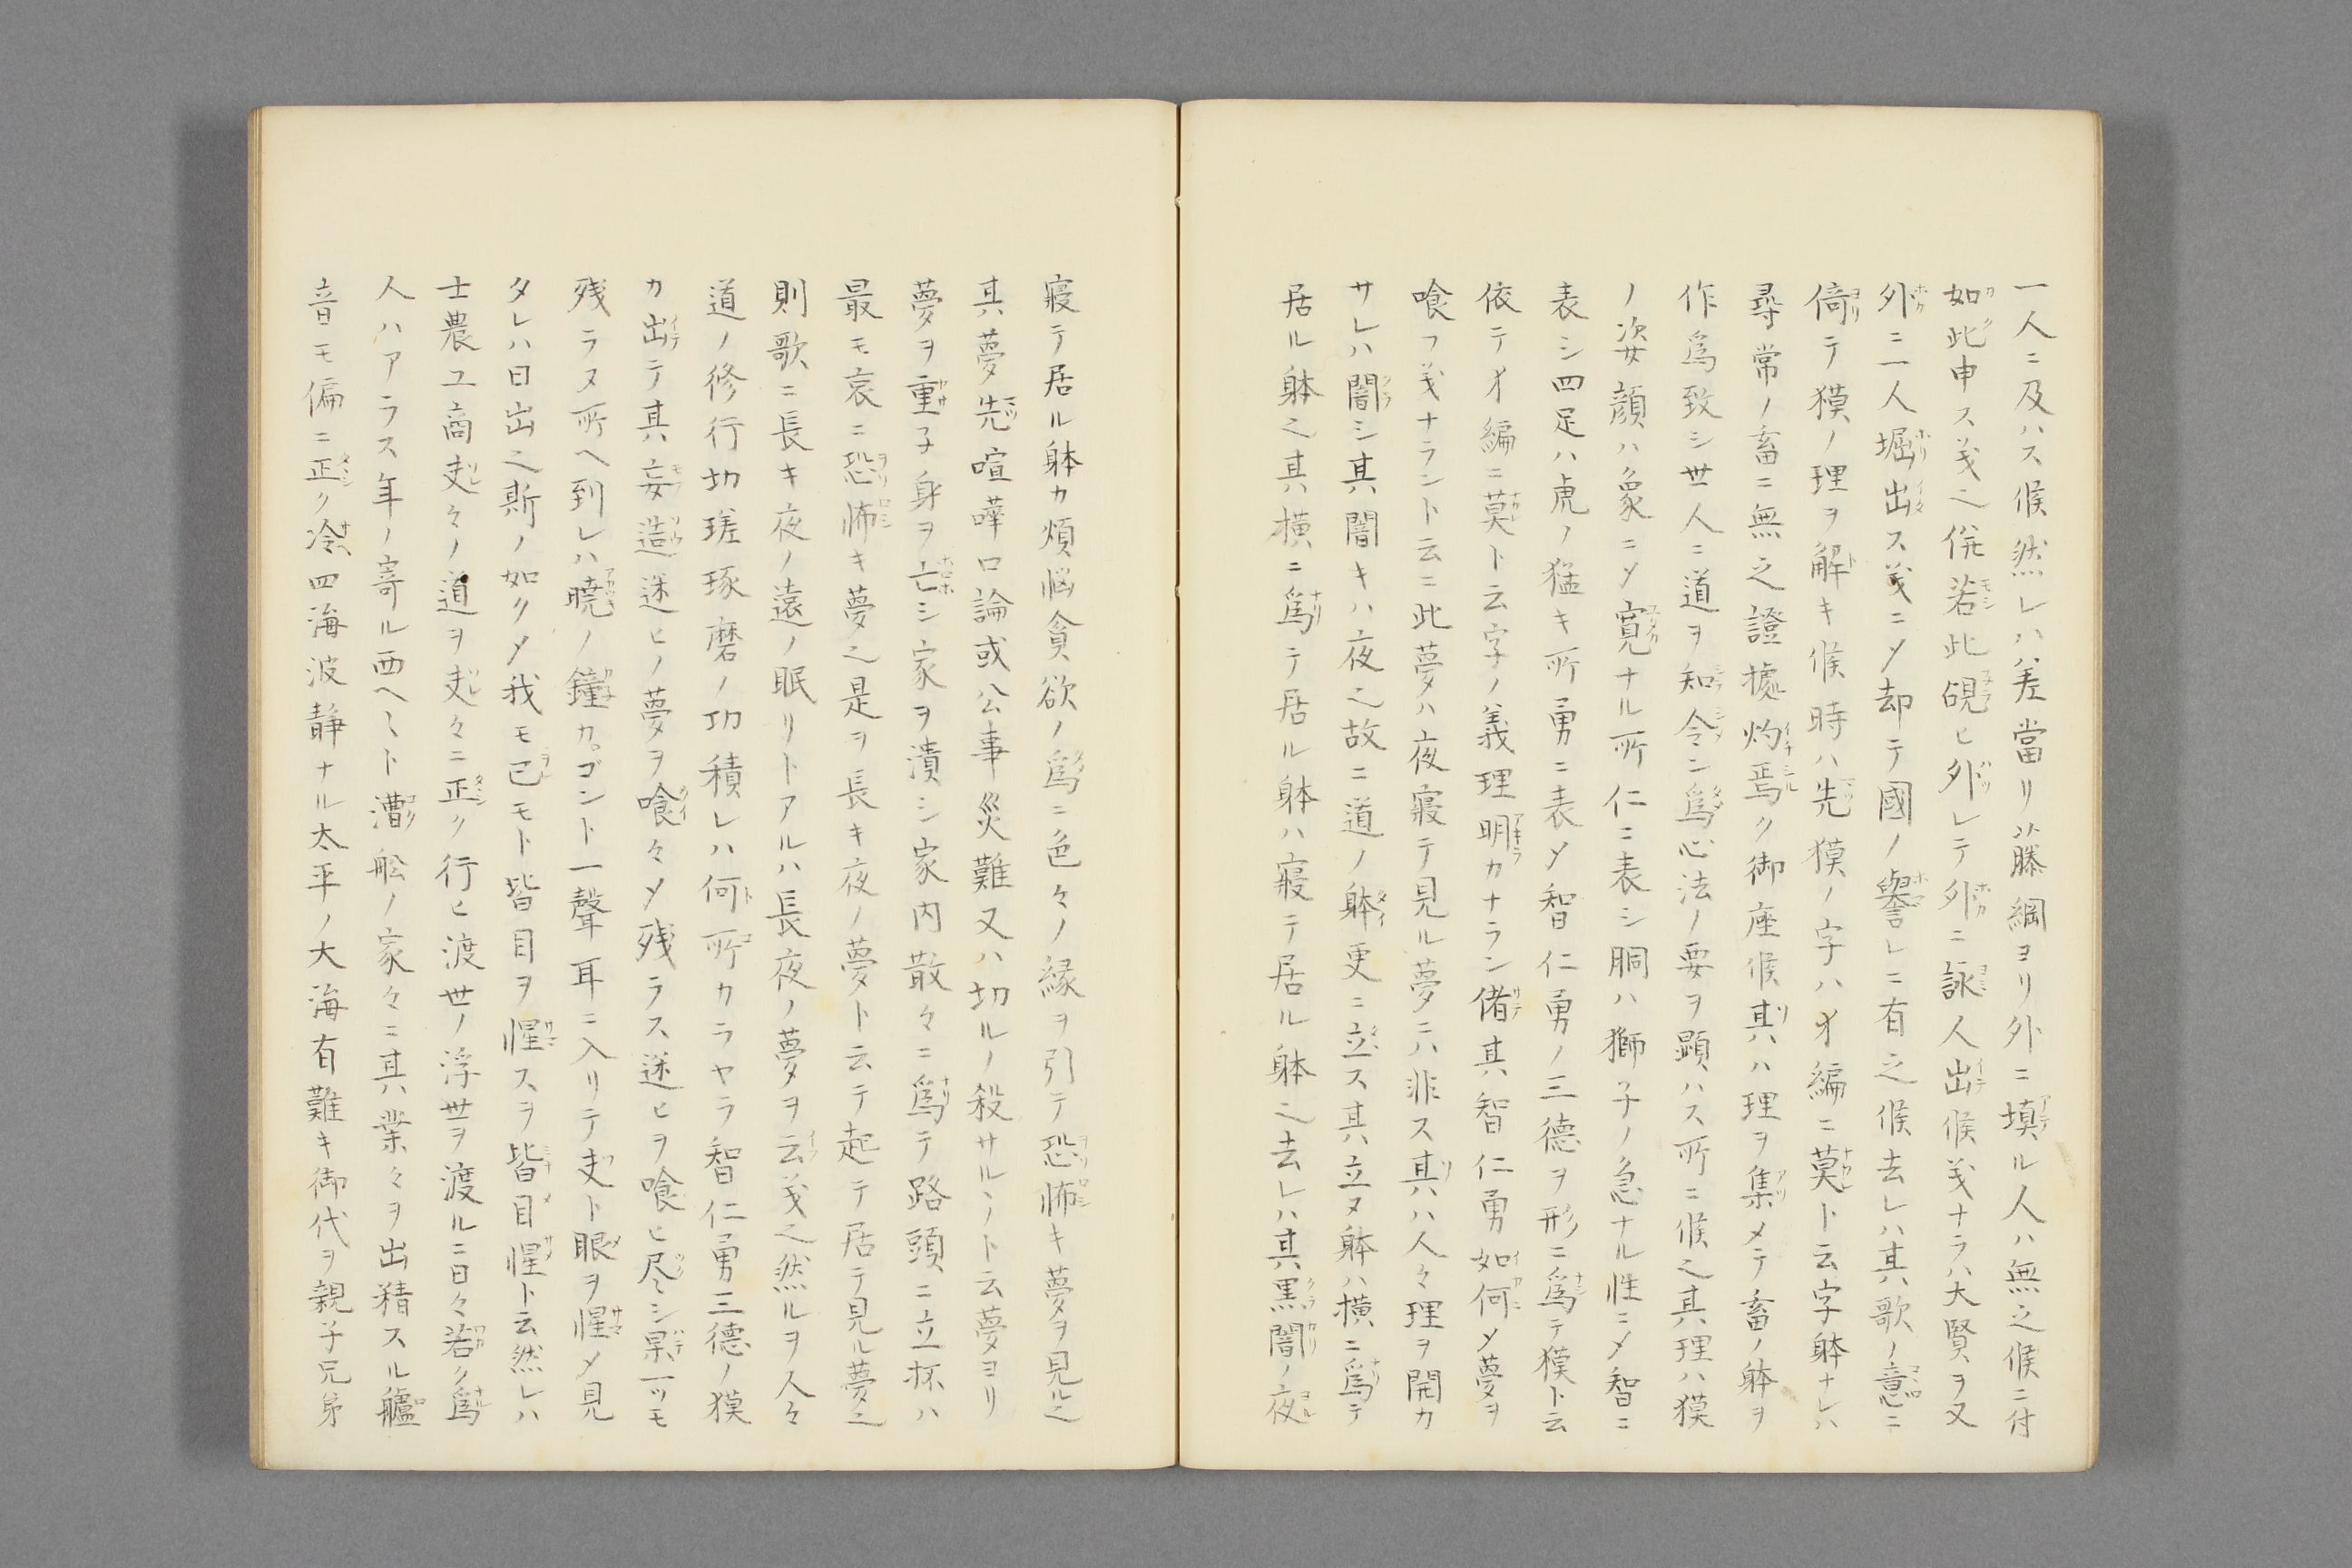 一人ニ及ハス候然レハ差當リ藤綱ヨリ外ニ填ル人ハ無之候ニ付
如此申ス義之併若此硯ヒ外レテ外ニ詠人出候義ナラハ大賢ヲ又
外ニ一人堀出ス義ニメ却テ國ノ譽レニ有之候去レハ其歌ノ意ニ
倚テ獏ノ理ヲ解キ候時ハ先獏ノ字ハ犭編ニ莫ト云字躰ナレハ
尋常ノ畜ニ無之證據灼焉ク御座候其ハ理ヲ集メテ畜ノ躰ヲ
作爲致シ世人ニ道ヲ知令ン爲心法ノ要ヲ顕ハス所ニ候之其理ハ獏
ノ姿顔ハ象ニメ寛ナル所仁ニ表シ胴ハ獅子ノ急ナル性ニメ智ニ
表シ四足ハ虎ノ猛キ所勇ニ表メ智仁勇ノ三德ヲ形ニ爲テ獏ト云
依テ犭編ニ莫ト云字ノ義理明カナラン偖其智仁勇如何メ夢ヲ
喰フ義ナラント云ニ此夢ハ夜寢テ見ル夢ニハ非ス其ハ人々理ヲ開カ
サレハ闇シ其闇キハ夜之故ニ道ノ躰更ニ立ス其立ヌ躰ハ横ニ爲テ
居ル躰之其横ニ爲テ居ル躰ハ寢テ居ル躰之去レハ其黒闇ノ夜
寢テ居ル躰カ煩悩貪欲ノ爲ニ色々ノ縁ヲ引テ恐怖キ夢ヲ見ル之
其夢先喧嘩口論或公事災難又ハ切ルノ殺サルヽト云夢ヨリ
夢ヲ重子身ヲ亡シ家ヲ潰シ家内散々ニ爲テ路頭ニ立抔ハ
最モ哀ニ恐怖キ夢之是ヲ長キ夜ノ夢ト云テ起テ居テ見ル夢之
則歌ニ長キ夜ノ遠ノ眠リトアルハ長夜ノ夢ヲ云義之然ルヲ人々
道ノ修行切瑳琢磨ノ功積レハ何所カラヤラ智仁勇三德ノ獏
カ出テ其妄造迷ヒノ夢ヲ喰々メ残ラス迷ヒヲ喰ヒ尽シ果一ツモ
残ラヌ所ヘ到レハ曉ノ鐘カゴント一聲耳ニ入リテ吏ト眼ヲ惺メ見
タレハ日出之斯ノ如クメ我モ已モト皆目ヲ惺スヲ皆目惺ト云然レハ
士農工商吏々ノ道ヲ吏々ニ正ク行ヒ渡世ノ浮世ヲ渡ルニ日々若ク爲
人ハアラス年ノ寄ル西ヘヽト漕舩ノ家々ニ其業々ヲ出精スル艫
音モ偏ニ正ク冷四海波静ナル太平ノ大海有難キ御代ヲ親子兄弟